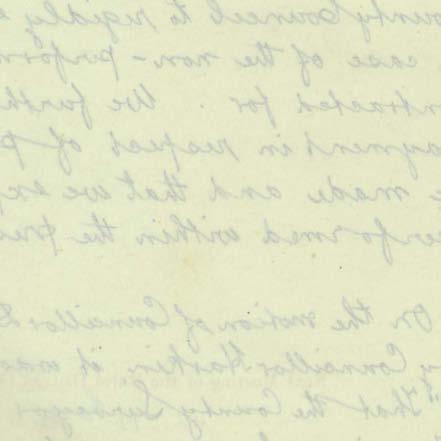 ounty Council to rigidly
case of the non-perform
ntracted for. We furth
ayment in respect of p
made and that we ex
erformed within the pre
On the motion of Councillor
y Councillor Harkin it was
"That the County Surveyor